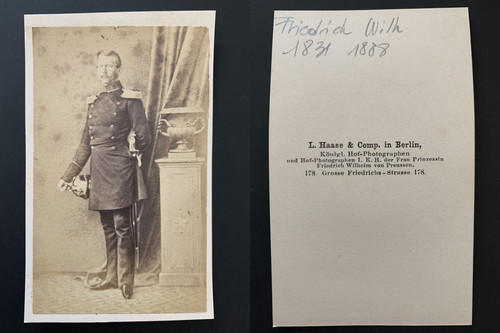 Friedrich Wilh
1831 1888
L. Haase & Comp. in Berlin,
Königl. Hof-Photographen
und Hof-Photographen I. K. H. der Frau Prinzessin
Friedrich Wilhelm von Preussen.
178. Grosse Friedrichs-Strasse 178.